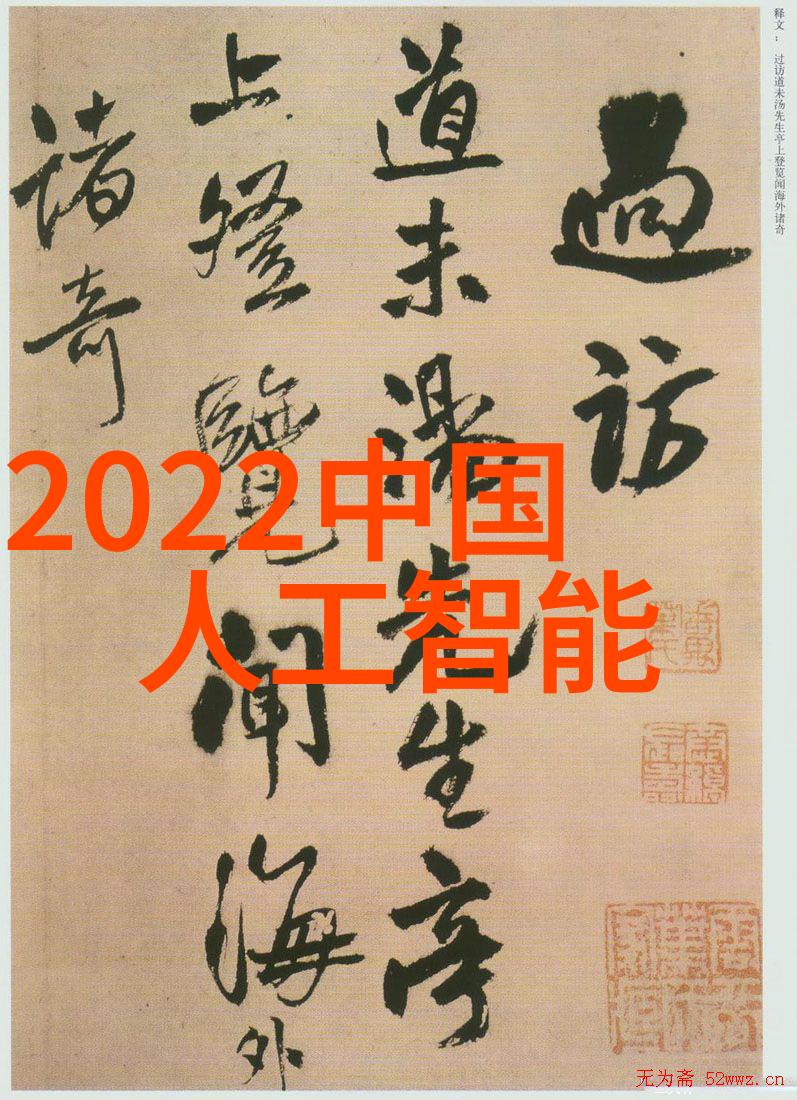 释文： 过访道未汤先生亭上登览闻海外诸奇
過訪
道未湯先生亭
上登覽聞海外
諸奇
2022中国
人工智能
无为斋 52wwz.cn